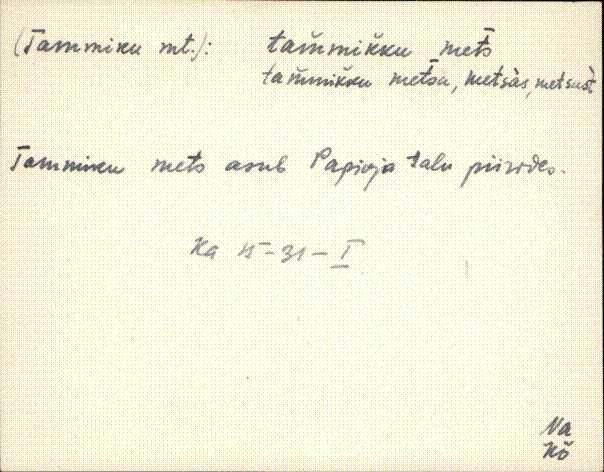 (Tammiku mt.): tam̆mik̆ku met̄s
tam̆mik̆ku met̄sa, met̀sàs, metsast̀
Tammiku mets asub Papioja talu piirides.
Ka II-31-I
Na
Kõ